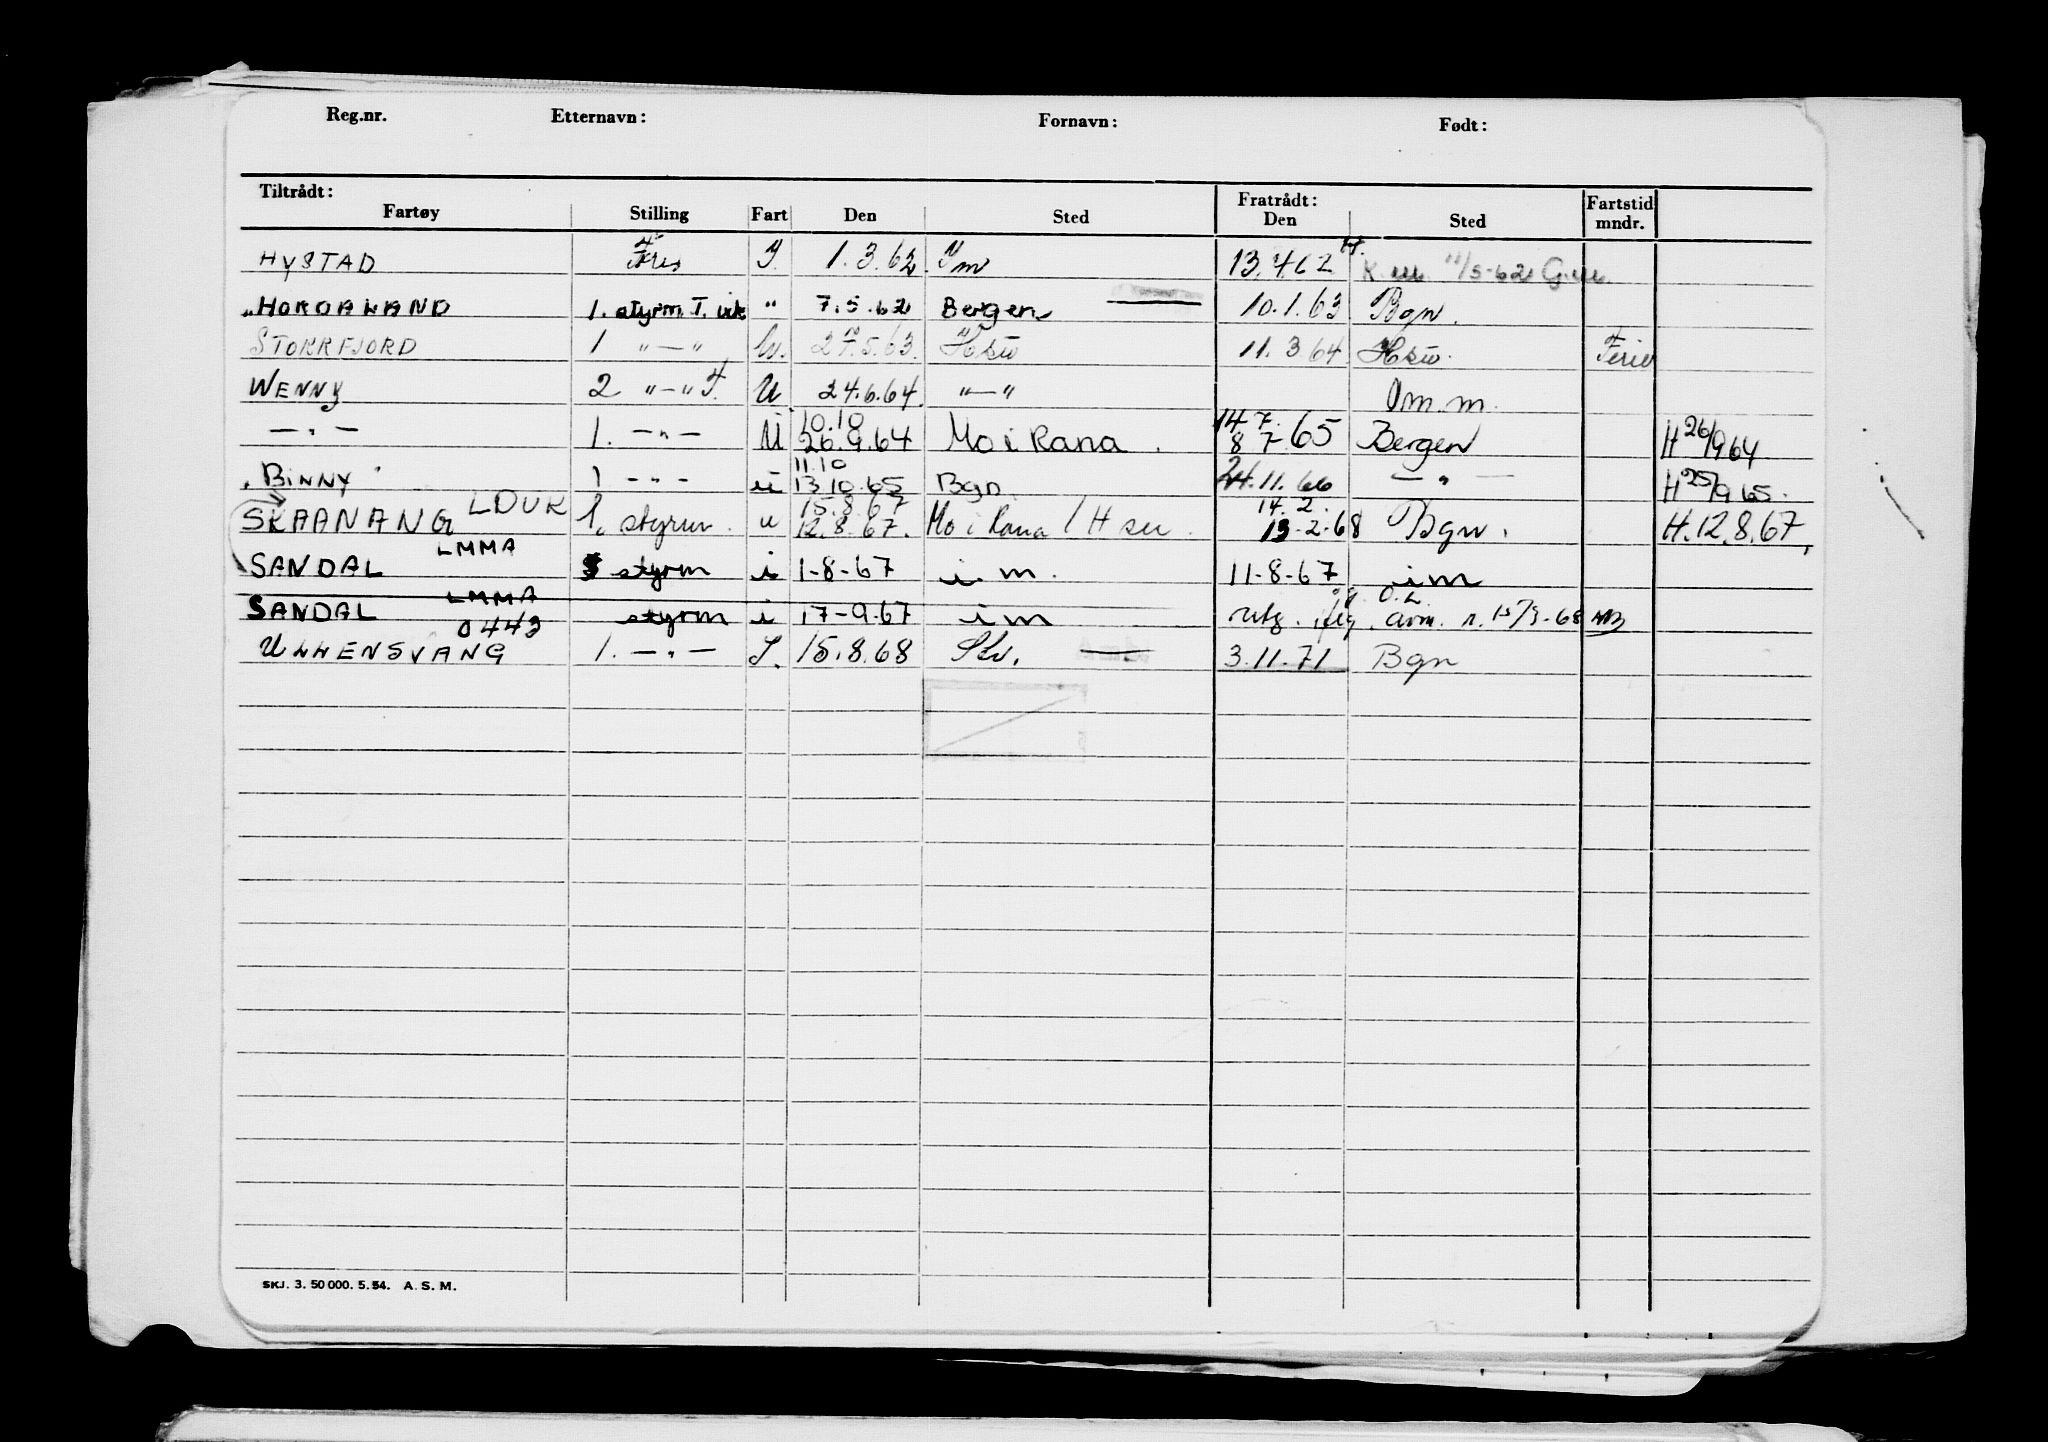 Reg.nr. Etternavn: Fornavn: Født:
Tiltrådt: Fratrådt: Fartstid
Fartøy Stilling Fart Den Sted Den Sted mndr.
HYSTAD I. 1.3.62 Im 13.4.62 11/5-62
"HORDALAND 1. styrm. T. vik " 7.5.62 Bergen 10.1.63 Bgn.
STORRFJORD 1 "—" 27.5.63. Hsw 11.3.64 Hsw. Ferie
WENNY 2 "—" U 24.6.64. "—" Om.m.
— " — 1. — " — U 10.10 26.9.64 Mo i Rana. 14 7. 8 7.65 Bergen H 26/9 64
"BINNY" 1 — " — u 11.10 13.10.65 Bgn. 24.11.66 — " — H 25/9 65.
SKAANANG LDUK 1. styrm. u 15.8.67 12.8.67. Mo i Rana / H 14.2. 13-2-68 Bgn. H.12.8.67.
SANDAL LMMA styrm i 1-8-67 i.m. 11-8-67 im
SANDAL LMMA styrm i 17-9.67 im utg. avm. n. 15/3-68
ULLENSVANG 0443 1. — " — I. 15.8.68 3.11.71 Bgn
SKJ. 3. 50 000. 5. 54. A. S. M.